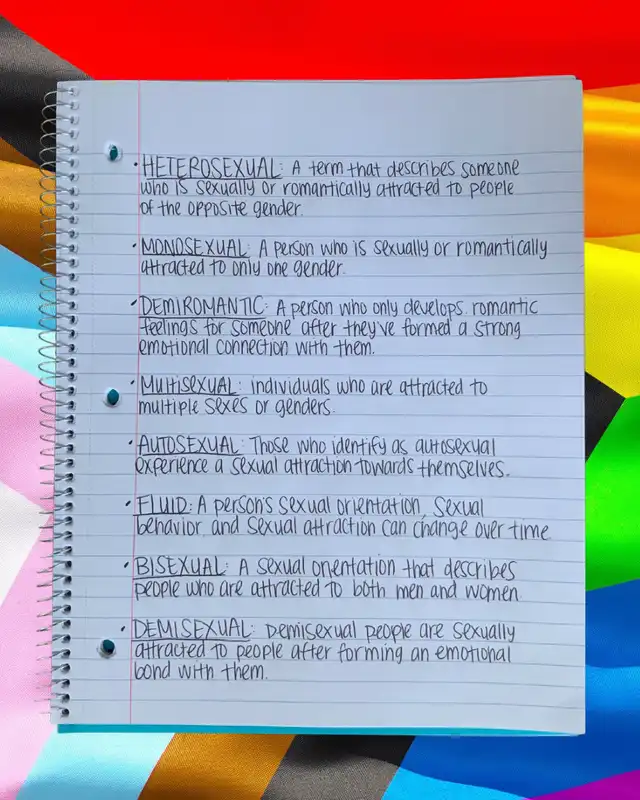 • HETEROSEXUAL: A term that describes someone
who is sexually or romantically attracted to people
of the opposite gender.
• MONOSEXUAL: A person who is sexually or romantically
attracted to only one gender.
• DEMIROMANTIC: A person who only develops romantic
feelings for someone after they've formed a strong
emotional connection with them.
• MULTISEXUAL: individuals who are attracted to
multiple sexes or genders.
• AUTOSEXUAL: Those who identify as autosexual
experience a sexual attraction towards themselves.
• FLUID: A person's sexual orientation, sexual
behavior and sexual attraction can change over time
• BISEXUAL: A sexual orientation that describes
people who are attracted to both men and women.
• DEMISEXUAL: Demisexual people are sexually
attracted to people after forming an emotional
bond with them.